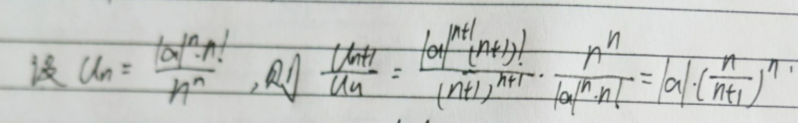 设 Uₙ = |a|ⁿ·n! / nⁿ ,则 Uₙ₊₁ / Uₙ = |a|ⁿ⁺¹(n+1)! / (n+1)ⁿ⁺¹ · nⁿ / |a|ⁿ·n! = |a|·(n / n+1)ⁿ.